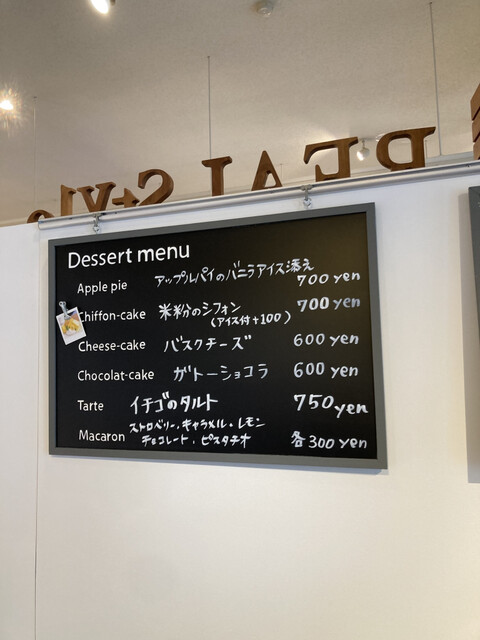 REAL Style
Dessert menu
Apple pie アップルパイのバニラアイス添え
700 yen
Chiffon-cake 米粉のシフォン 700 yen
(アイス付+100)
Cheese-cake バスクチーズ 600 yen
Chocolat-cake ガトーショコラ 600 yen
Tarte イチゴのタルト 750 yen
ストロベリー・キャラメル・レモン
Macaron チョコレート・ピスタチオ 各300 yen